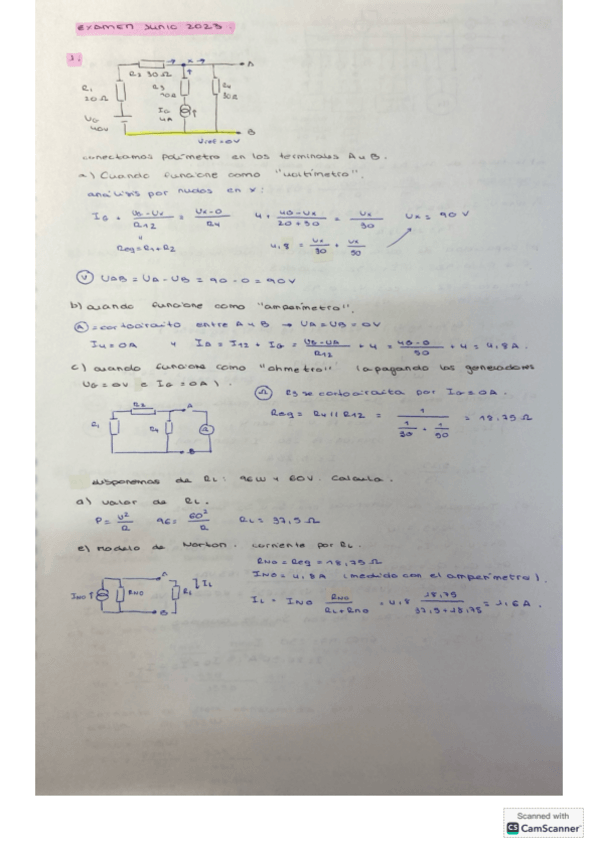 EXAMEN JUNIO 2023.
1.
R2 30Ω
x
A
R1
20Ω
R3
10Ω
R4
30Ω
IG
4A
UG
40V
B
Vref = 0V
conectamos polímetro en los terminales A y B.
a) Cuando funcione como "voltímetro".
análisis por nudos en x:
IG + UG-Ux / R12 = Ux-0 / R4
4 + 40-Ux / 20+30 = Ux / 30
Ux = 90 V
Req = R1 + R2
4,8 = Ux / 30 + Ux / 50
V UAB = UA - UB = 90 - 0 = 90V
b) cuando funcione como "amperímetro".
A = cortocircuito entre A y B → UA = UB = 0V
I4 = 0A y IA = I12 + IG = UG-UA / R12 + 4 = 40-0 / 50 + 4 = 4,8A.
c) cuando funcione como "ohmetro" (apagando los generadores
UG = 0V e IG = 0A).
Ω R3 se cortocircuita por IG = 0A.
R2
A
R1
R4
Ω
B
Req = R4 // R12 = 1 / 1/30 + 1/50 = 18,75 Ω
disponemos de RL: 96W y 60V. Calcula.
d) valor de RL.
P = U² / R 96 = 60² / R RL = 37,5 Ω
e) modelo de Norton. corriente por RL.
RNO = Req = 18,75 Ω
INO = 4,8A (medido con el amperímetro).
INO
RNO
A
RL
IL
B
IL = INO RNO / RL + RNO = 4,8 18,75 / 37,5 + 18,75 = 1,6 A.
Scanned with
CS CamScanner